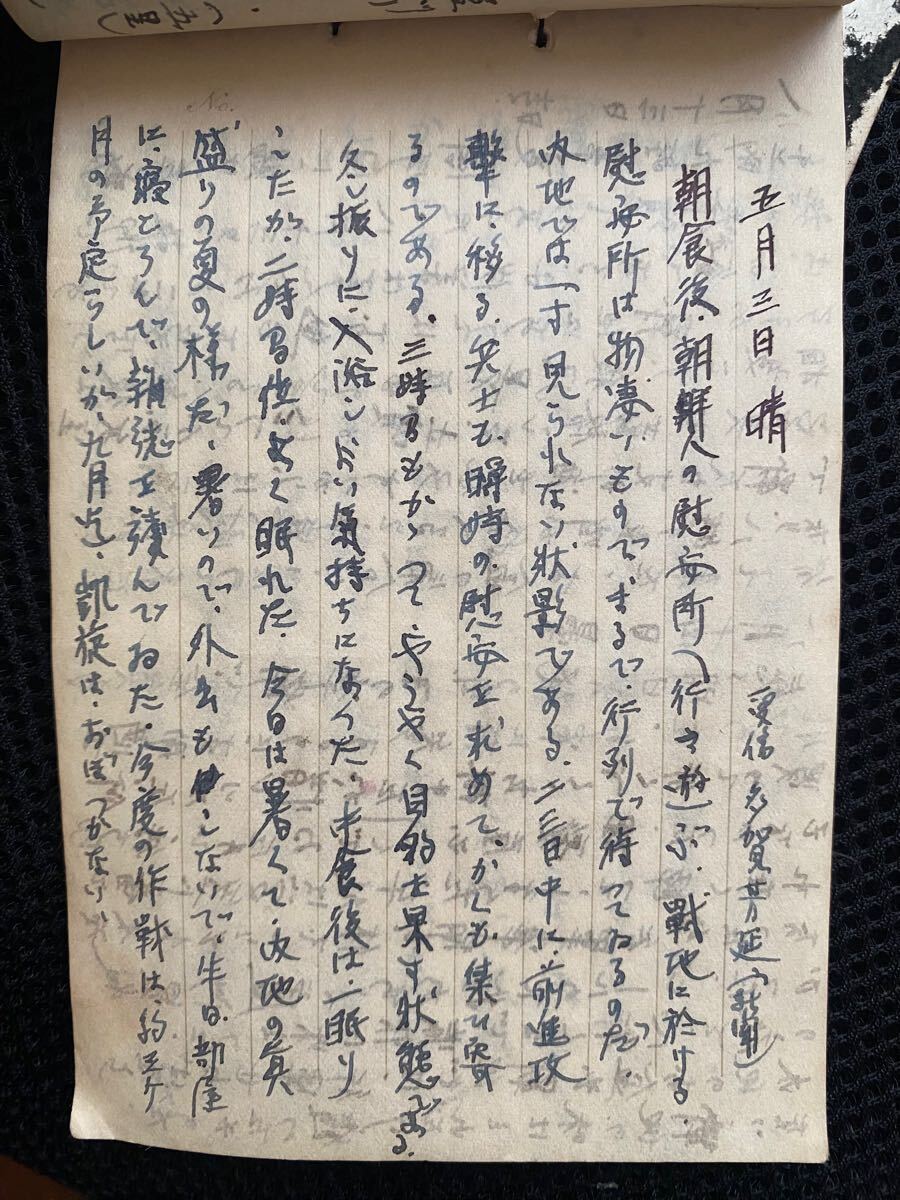 五月三日 晴
受信 志賀芳延(新聞)
朝食後、朝鮮人の慰安所へ行き遊ぶ。戰地に於ける
慰安所は物凄いもので、まるで、行列で待ってゐるのだ。
内地では一寸見られない状影である。二三日中に、前進攻
撃に移る。兵士も、瞬時の慰安を求めて、かくも集ひ寄
るのである。三時間もかゝって、やうやく目的を果す状態である。
久し振りに、入浴しよい氣持ちになった。中食後は、一眠り
したが、二時間位、よく眠れた。今日は暑くて、内地の眞
盛りの夏の様だ。暑いので、外出もしないで、半日、部屋
に寢ころんで、雜誌を讀んでゐた。今度の作戰は、約三ケ
月の予定らしいが、九月迄、凱旋は、おぼつかない。
(五里)
No.